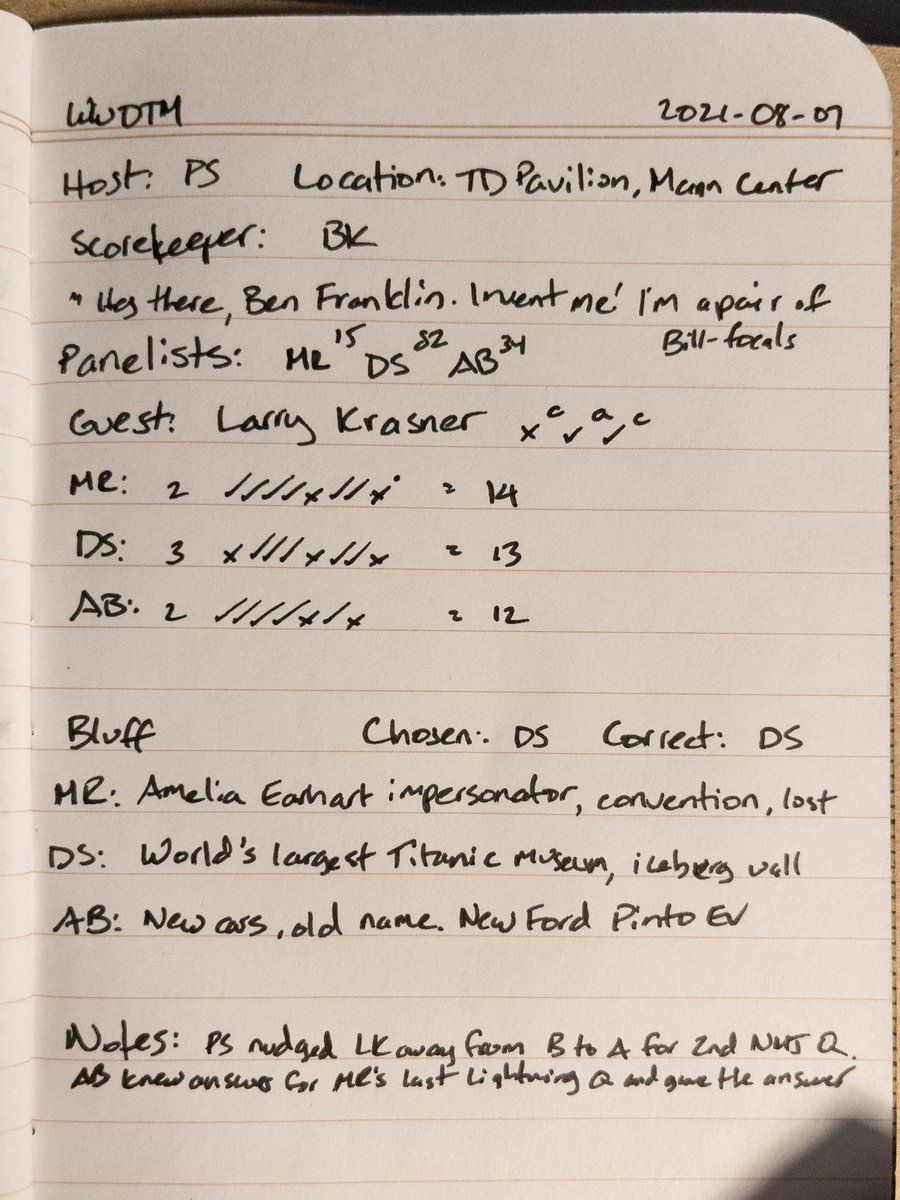 WWDTM 2021-08-07
Host: PS Location: TD Pavilion, Mann Center
Scorekeeper: BK
"Hey there, Ben Franklin. Invent me! I'm a pair of
Bill-focals
Panelists: MR 15 DS 82 AB 34
Guest: Larry Krasner x c ✓ a ✓ c
MR: 2 ////x//x• = 14
DS: 3 x///x//x = 13
AB: 2 ////x/x = 12
Bluff Chosen: DS Correct: DS
MR: Amelia Earhart impersonator, convention, lost
DS: World's largest Titanic Museum, iceberg wall
AB: New cars, old name. New Ford Pinto EV
Notes: PS nudged LK away from B to A for 2nd NMJ Q.
AB knew answer for MR's last Lightning Q and gave the answer